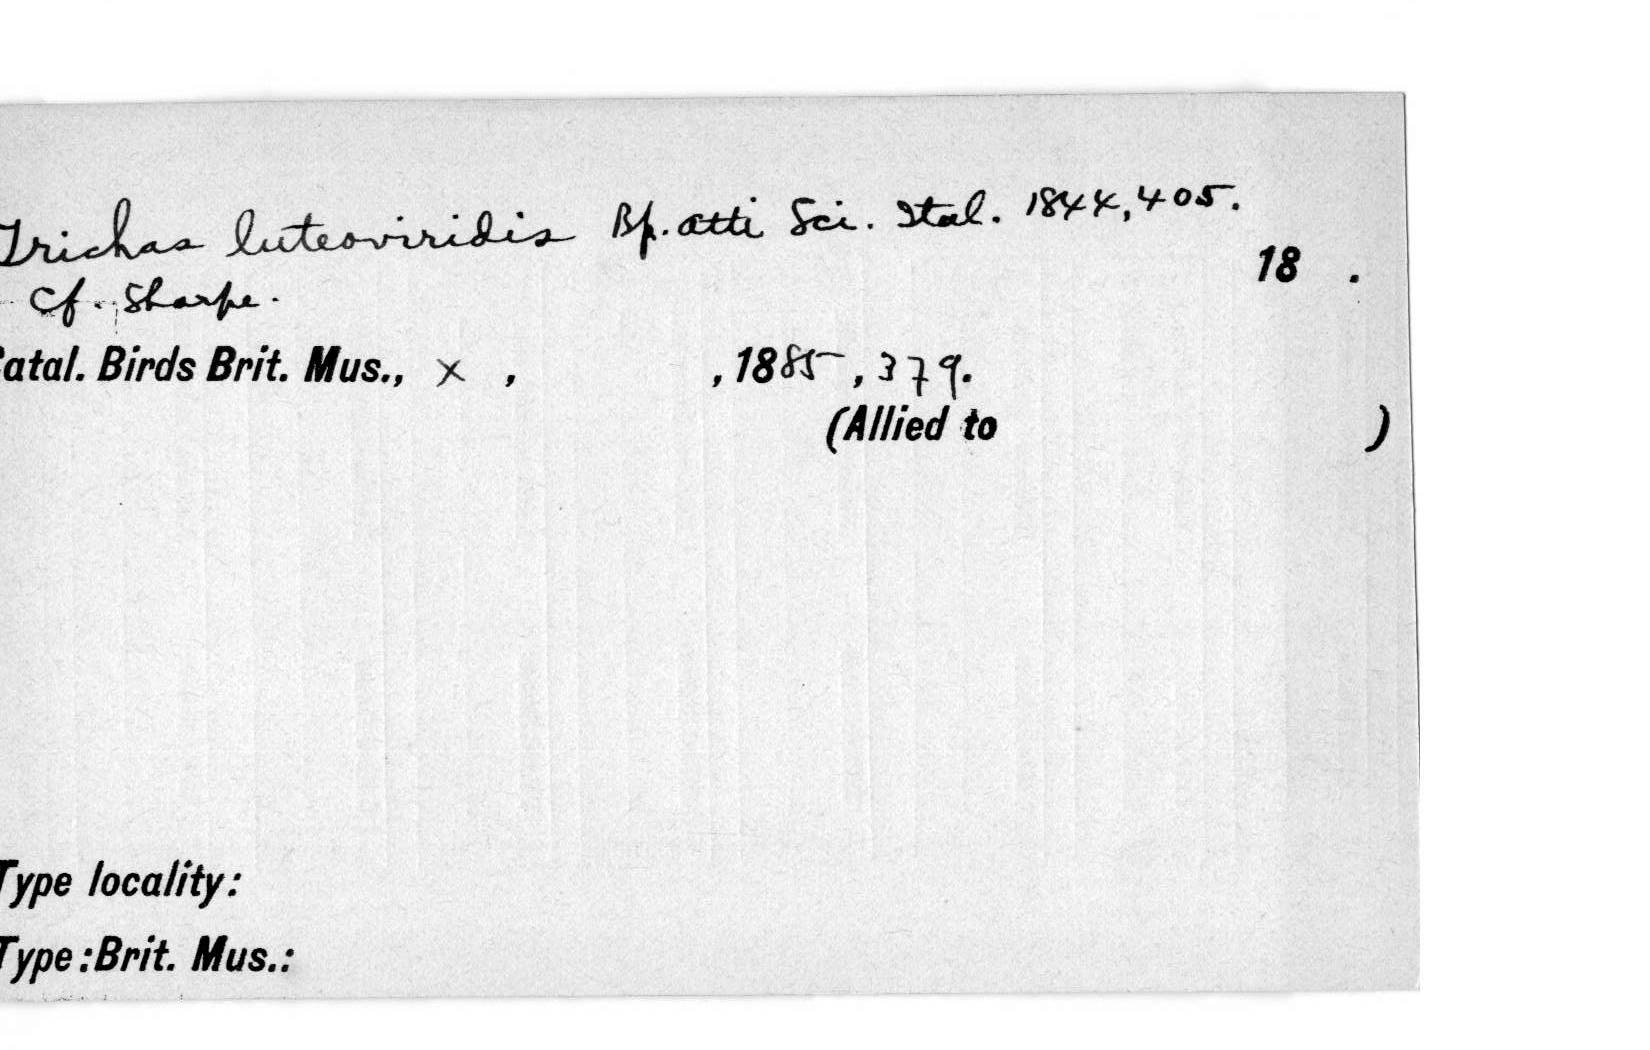 Trichas luteoviridis Bp. Atti Sci. Ital. 1844, 405.
18 .
Cf. Sharpe.
Catal. Birds Brit. Mus., X , , 1885, 379.
(Allied to )
Type locality:
Type: Brit. Mus.: